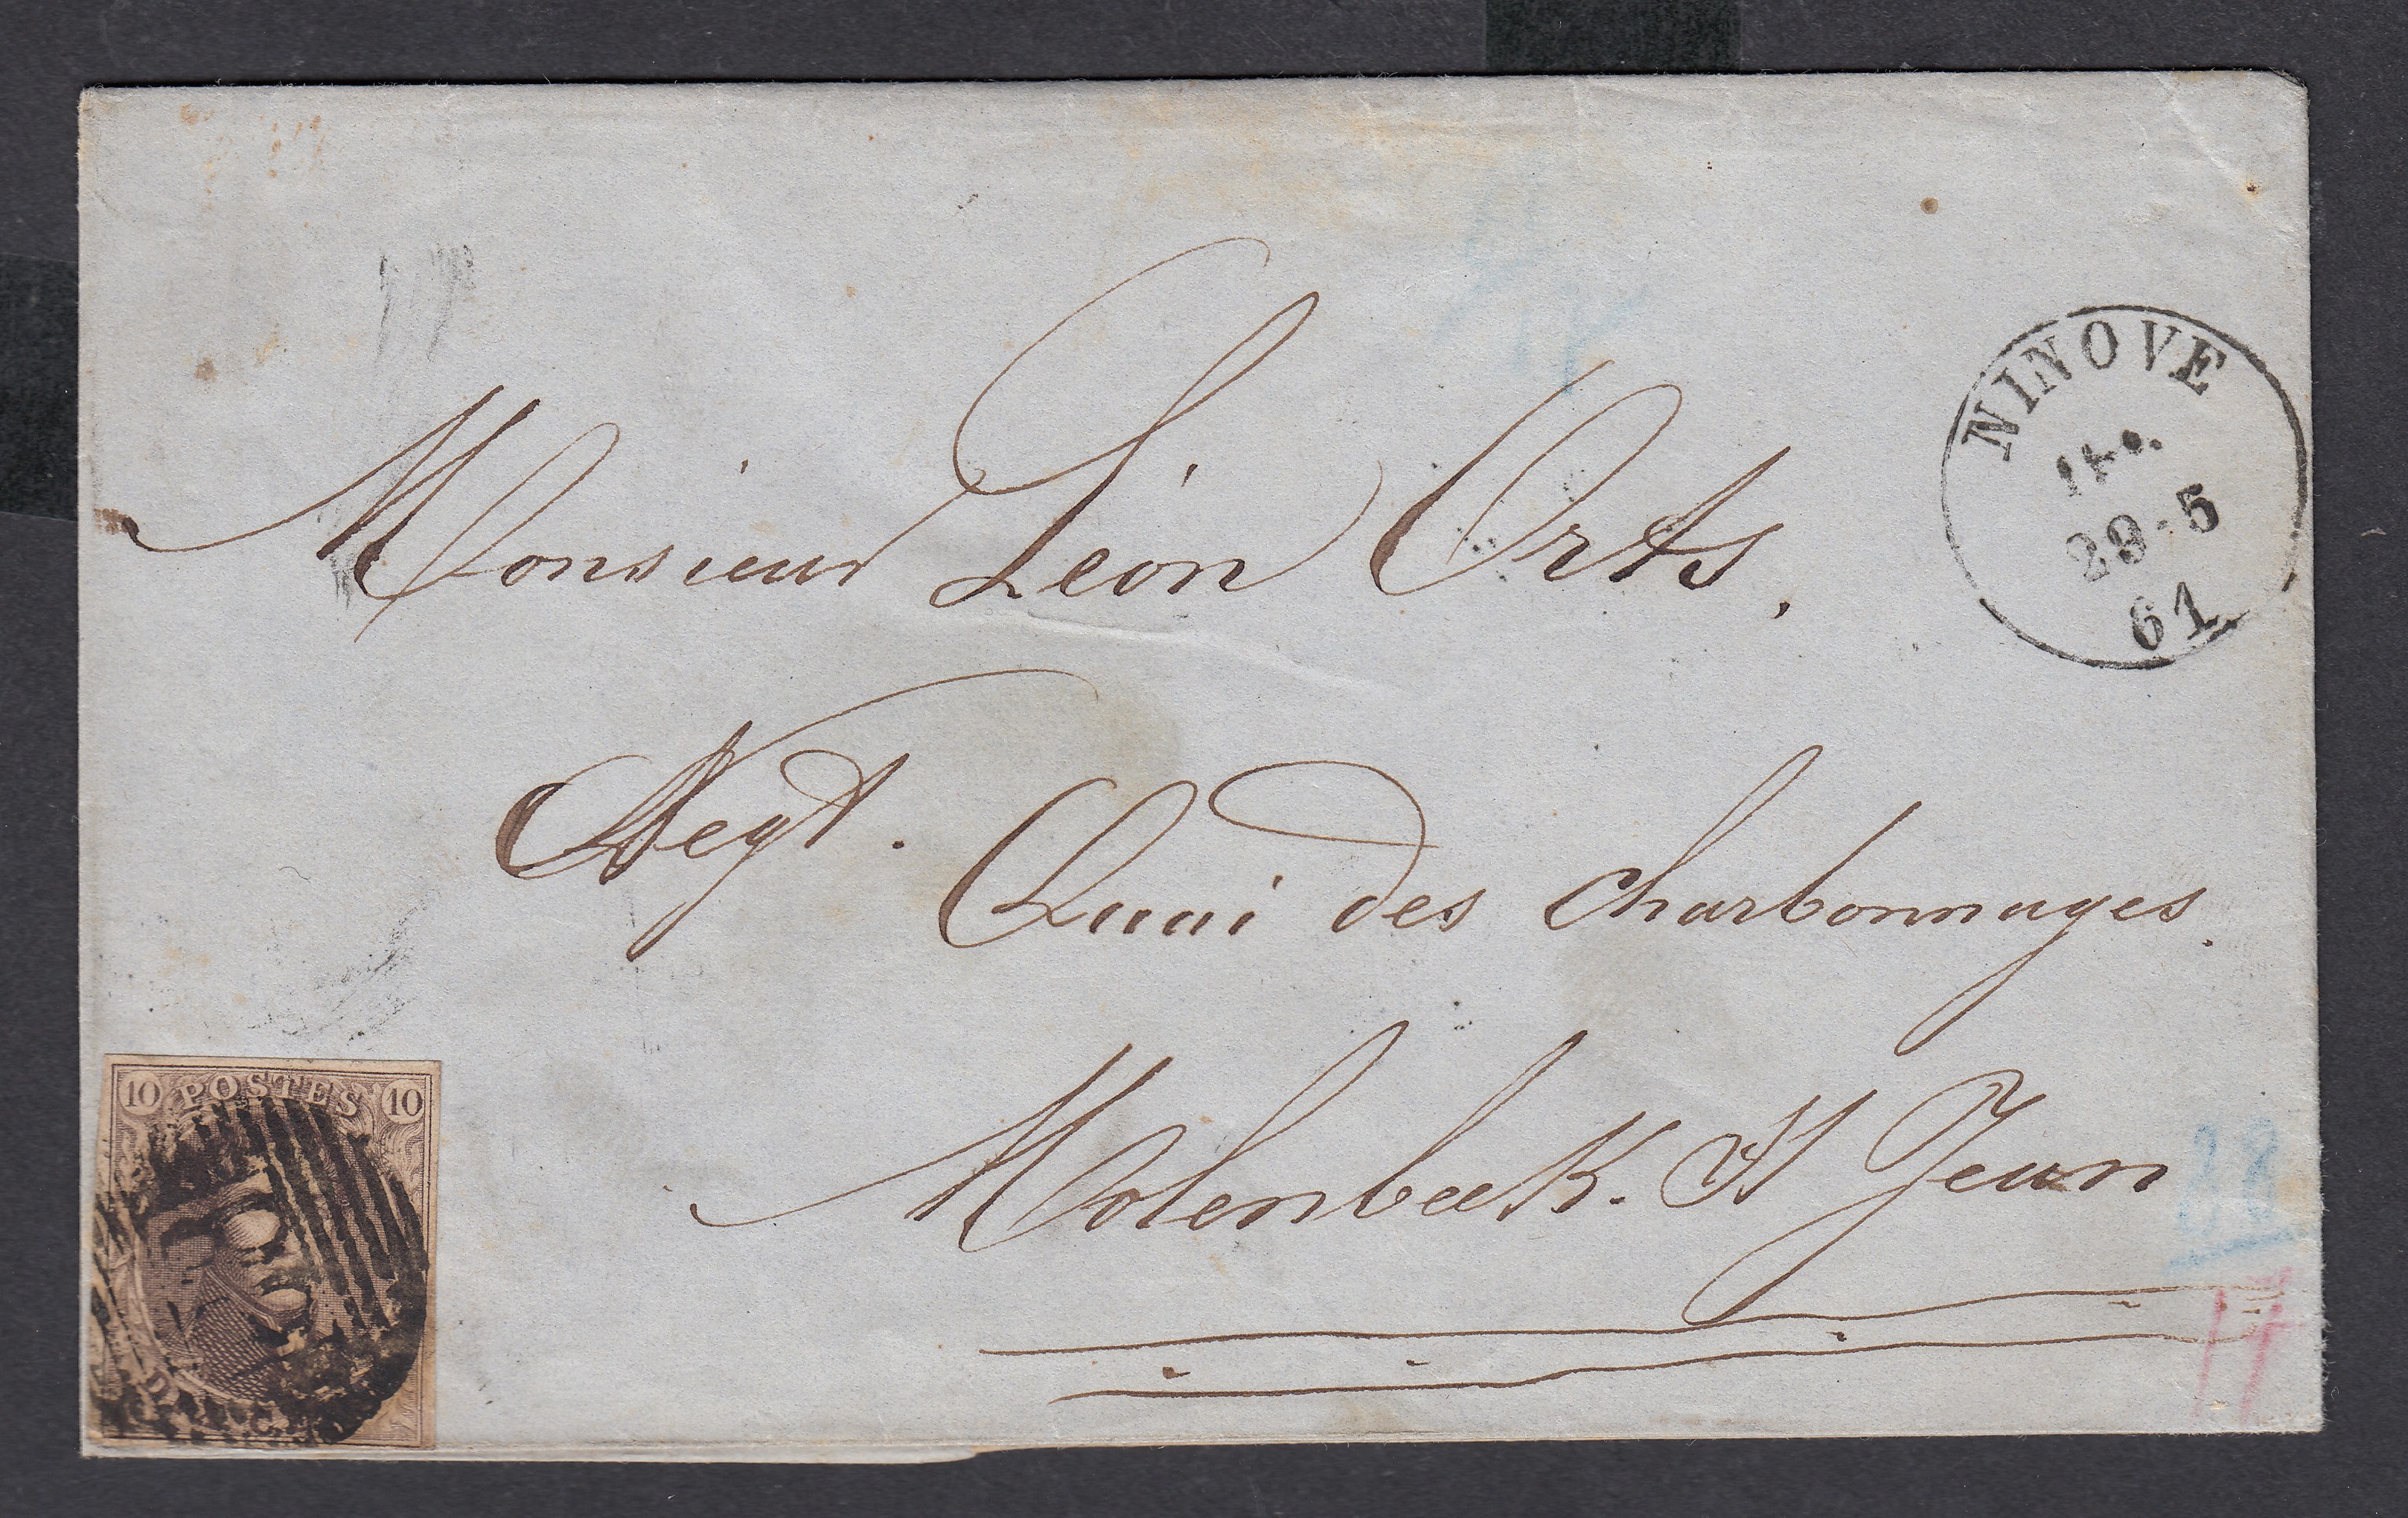 Monsieur Léon Orts,
Negt. Quai des Charbonnages.
Molenbeek. St Jean
NINOVE
29-5
61
10 POSTES 10
28
17